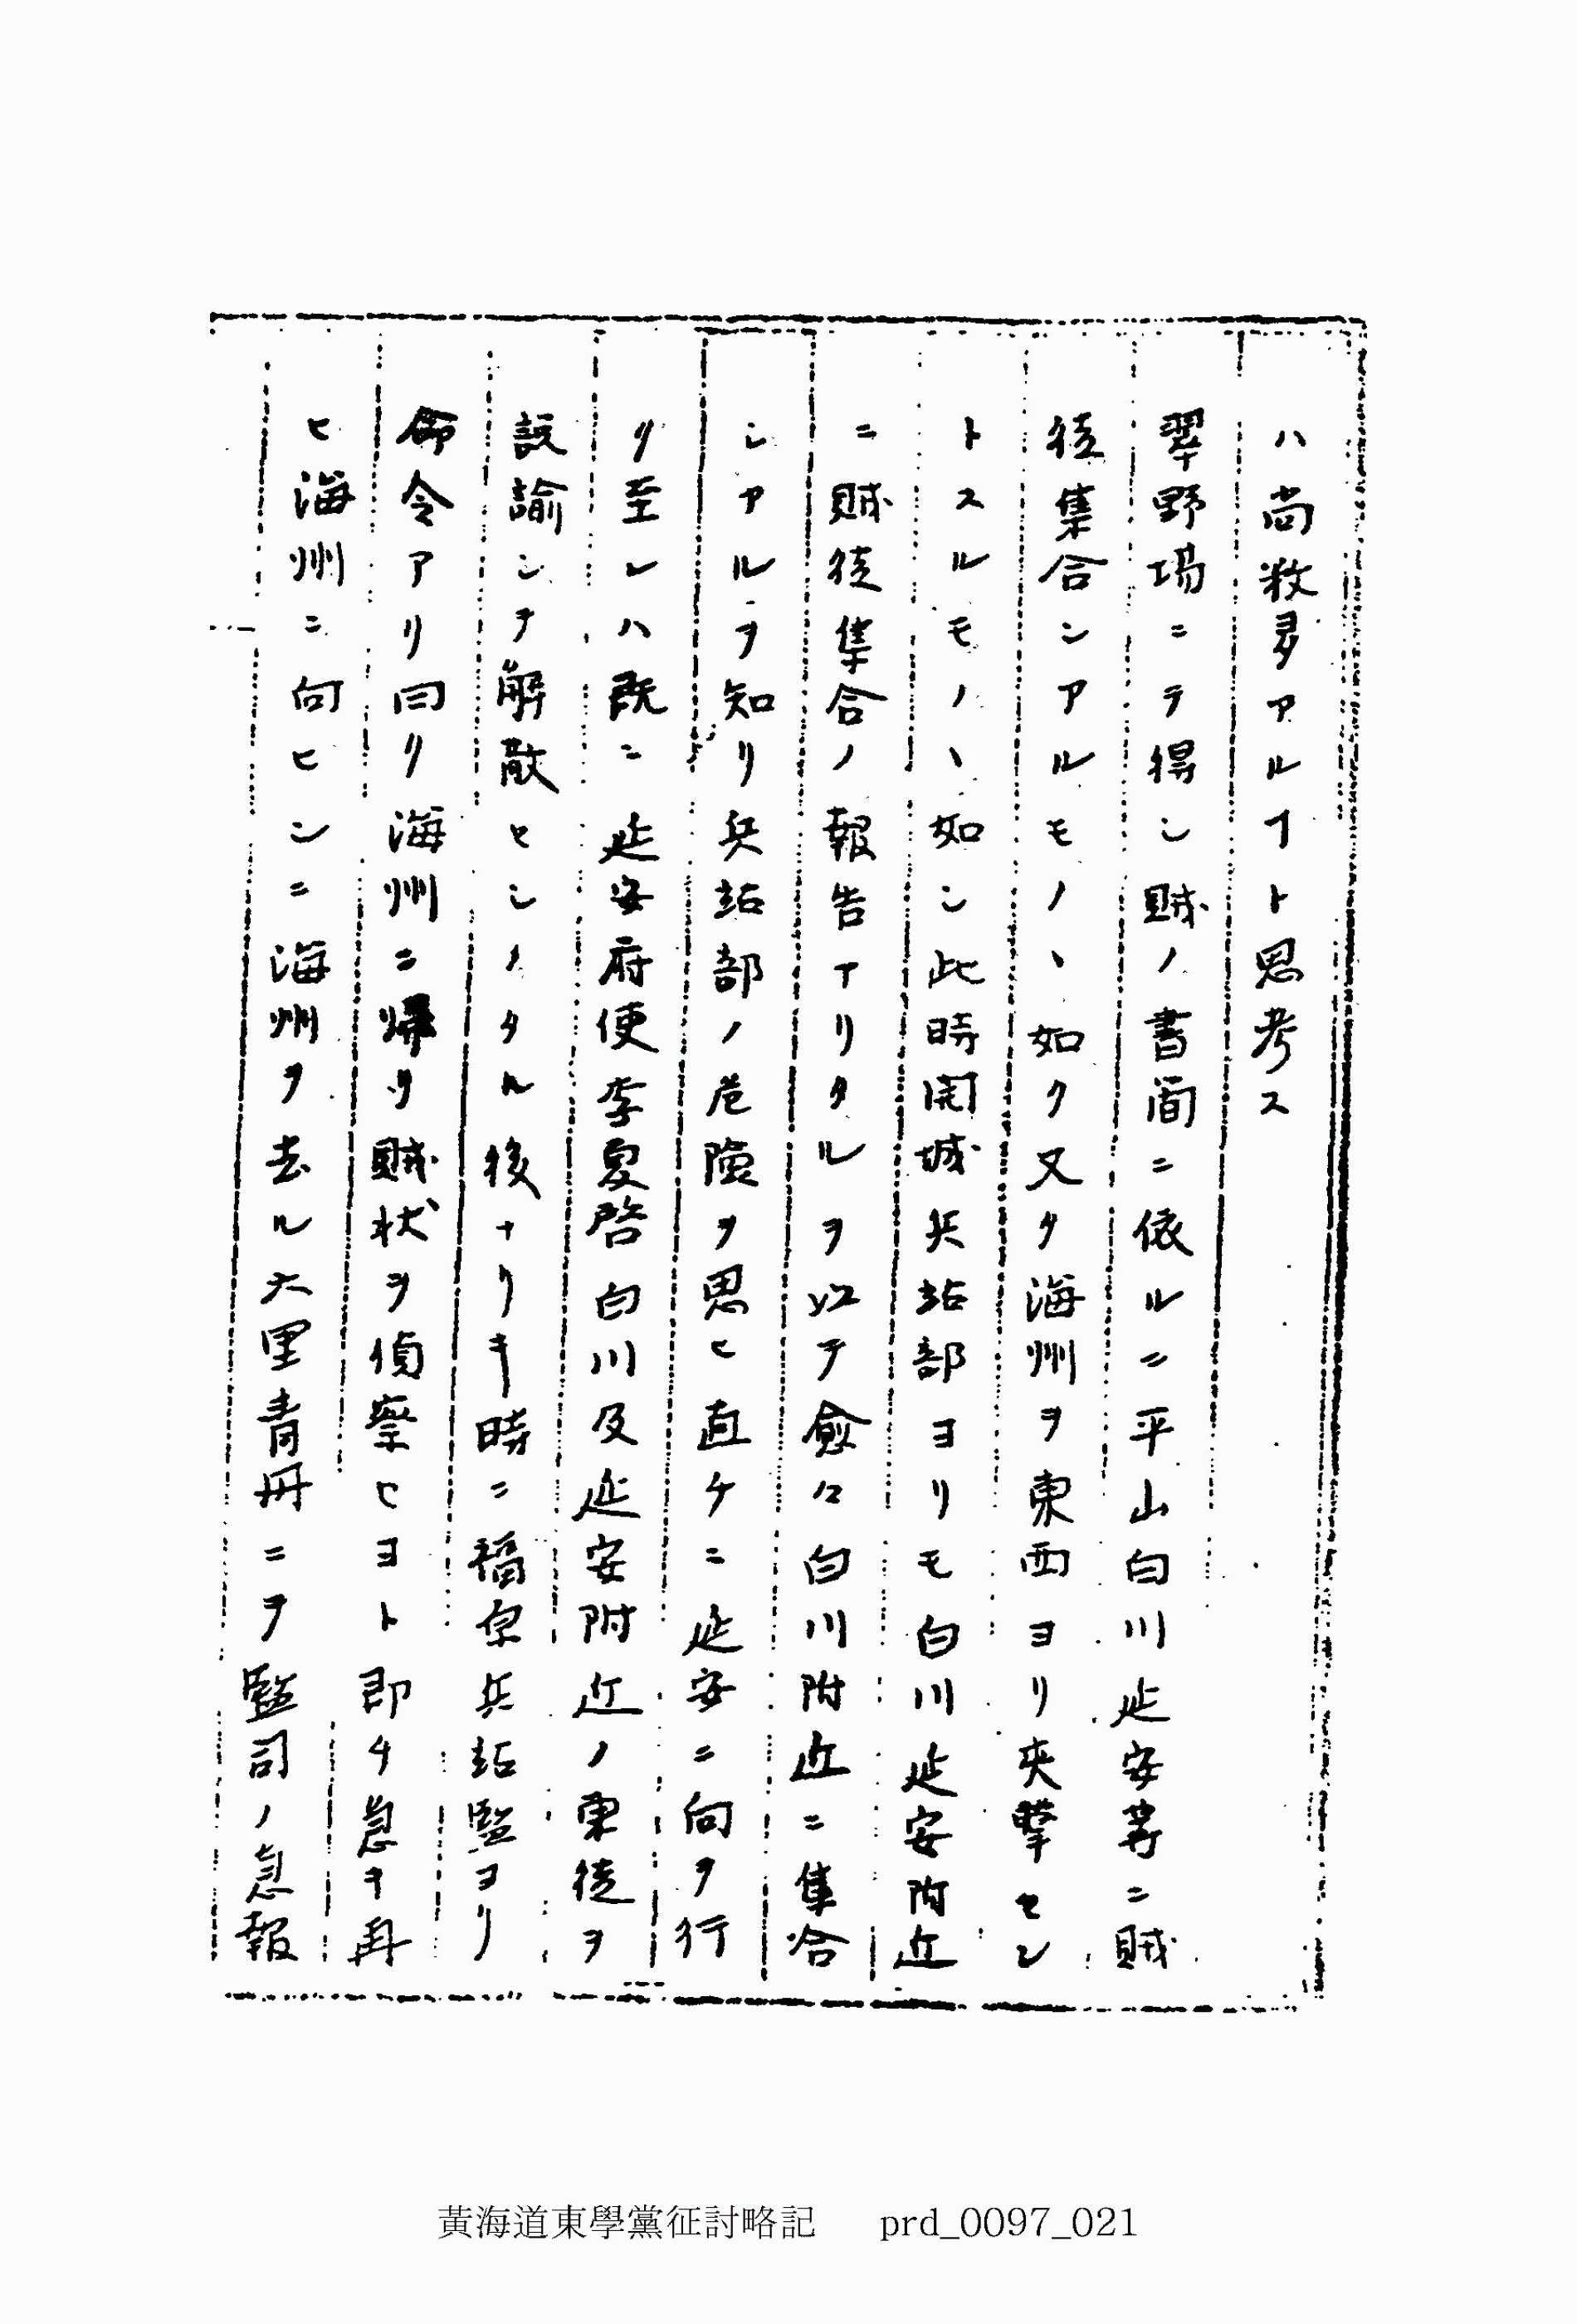 ハ尚数多アルヿト思考ス
翠野場ニテ得シ賊ノ書簡ニ依ルニ平山白川延安等ニ賊
徒集合シアルモノヽ如ク又タ海州ヲ東西ヨリ夾撃セン
トスルモノヽ如シ此時開城兵站部ヨリモ白川延安附近
ニ賊徒集合ノ報告アリタルヲ以テ愈々白川附近ニ集合
シアルヲ知リ兵站部ノ危険ヲ思ヒ直ケニ延安ニ向ヲ行
リ至レハ既ニ延安府使李夏啓白川及延安附近ノ東徒ヲ
説諭シテ解散セシメタル後ナリキ時ニ福原兵站監ヨリ
命令アリ曰リ海州ニ帰リ賊状ヲ偵察セヨト即チ急キ再
ヒ海州ニ向ヒシニ海州ヲ去ル六里青丹ニヲ監司ノ急報
黃海道東學黨征討略記 prd_0097_021